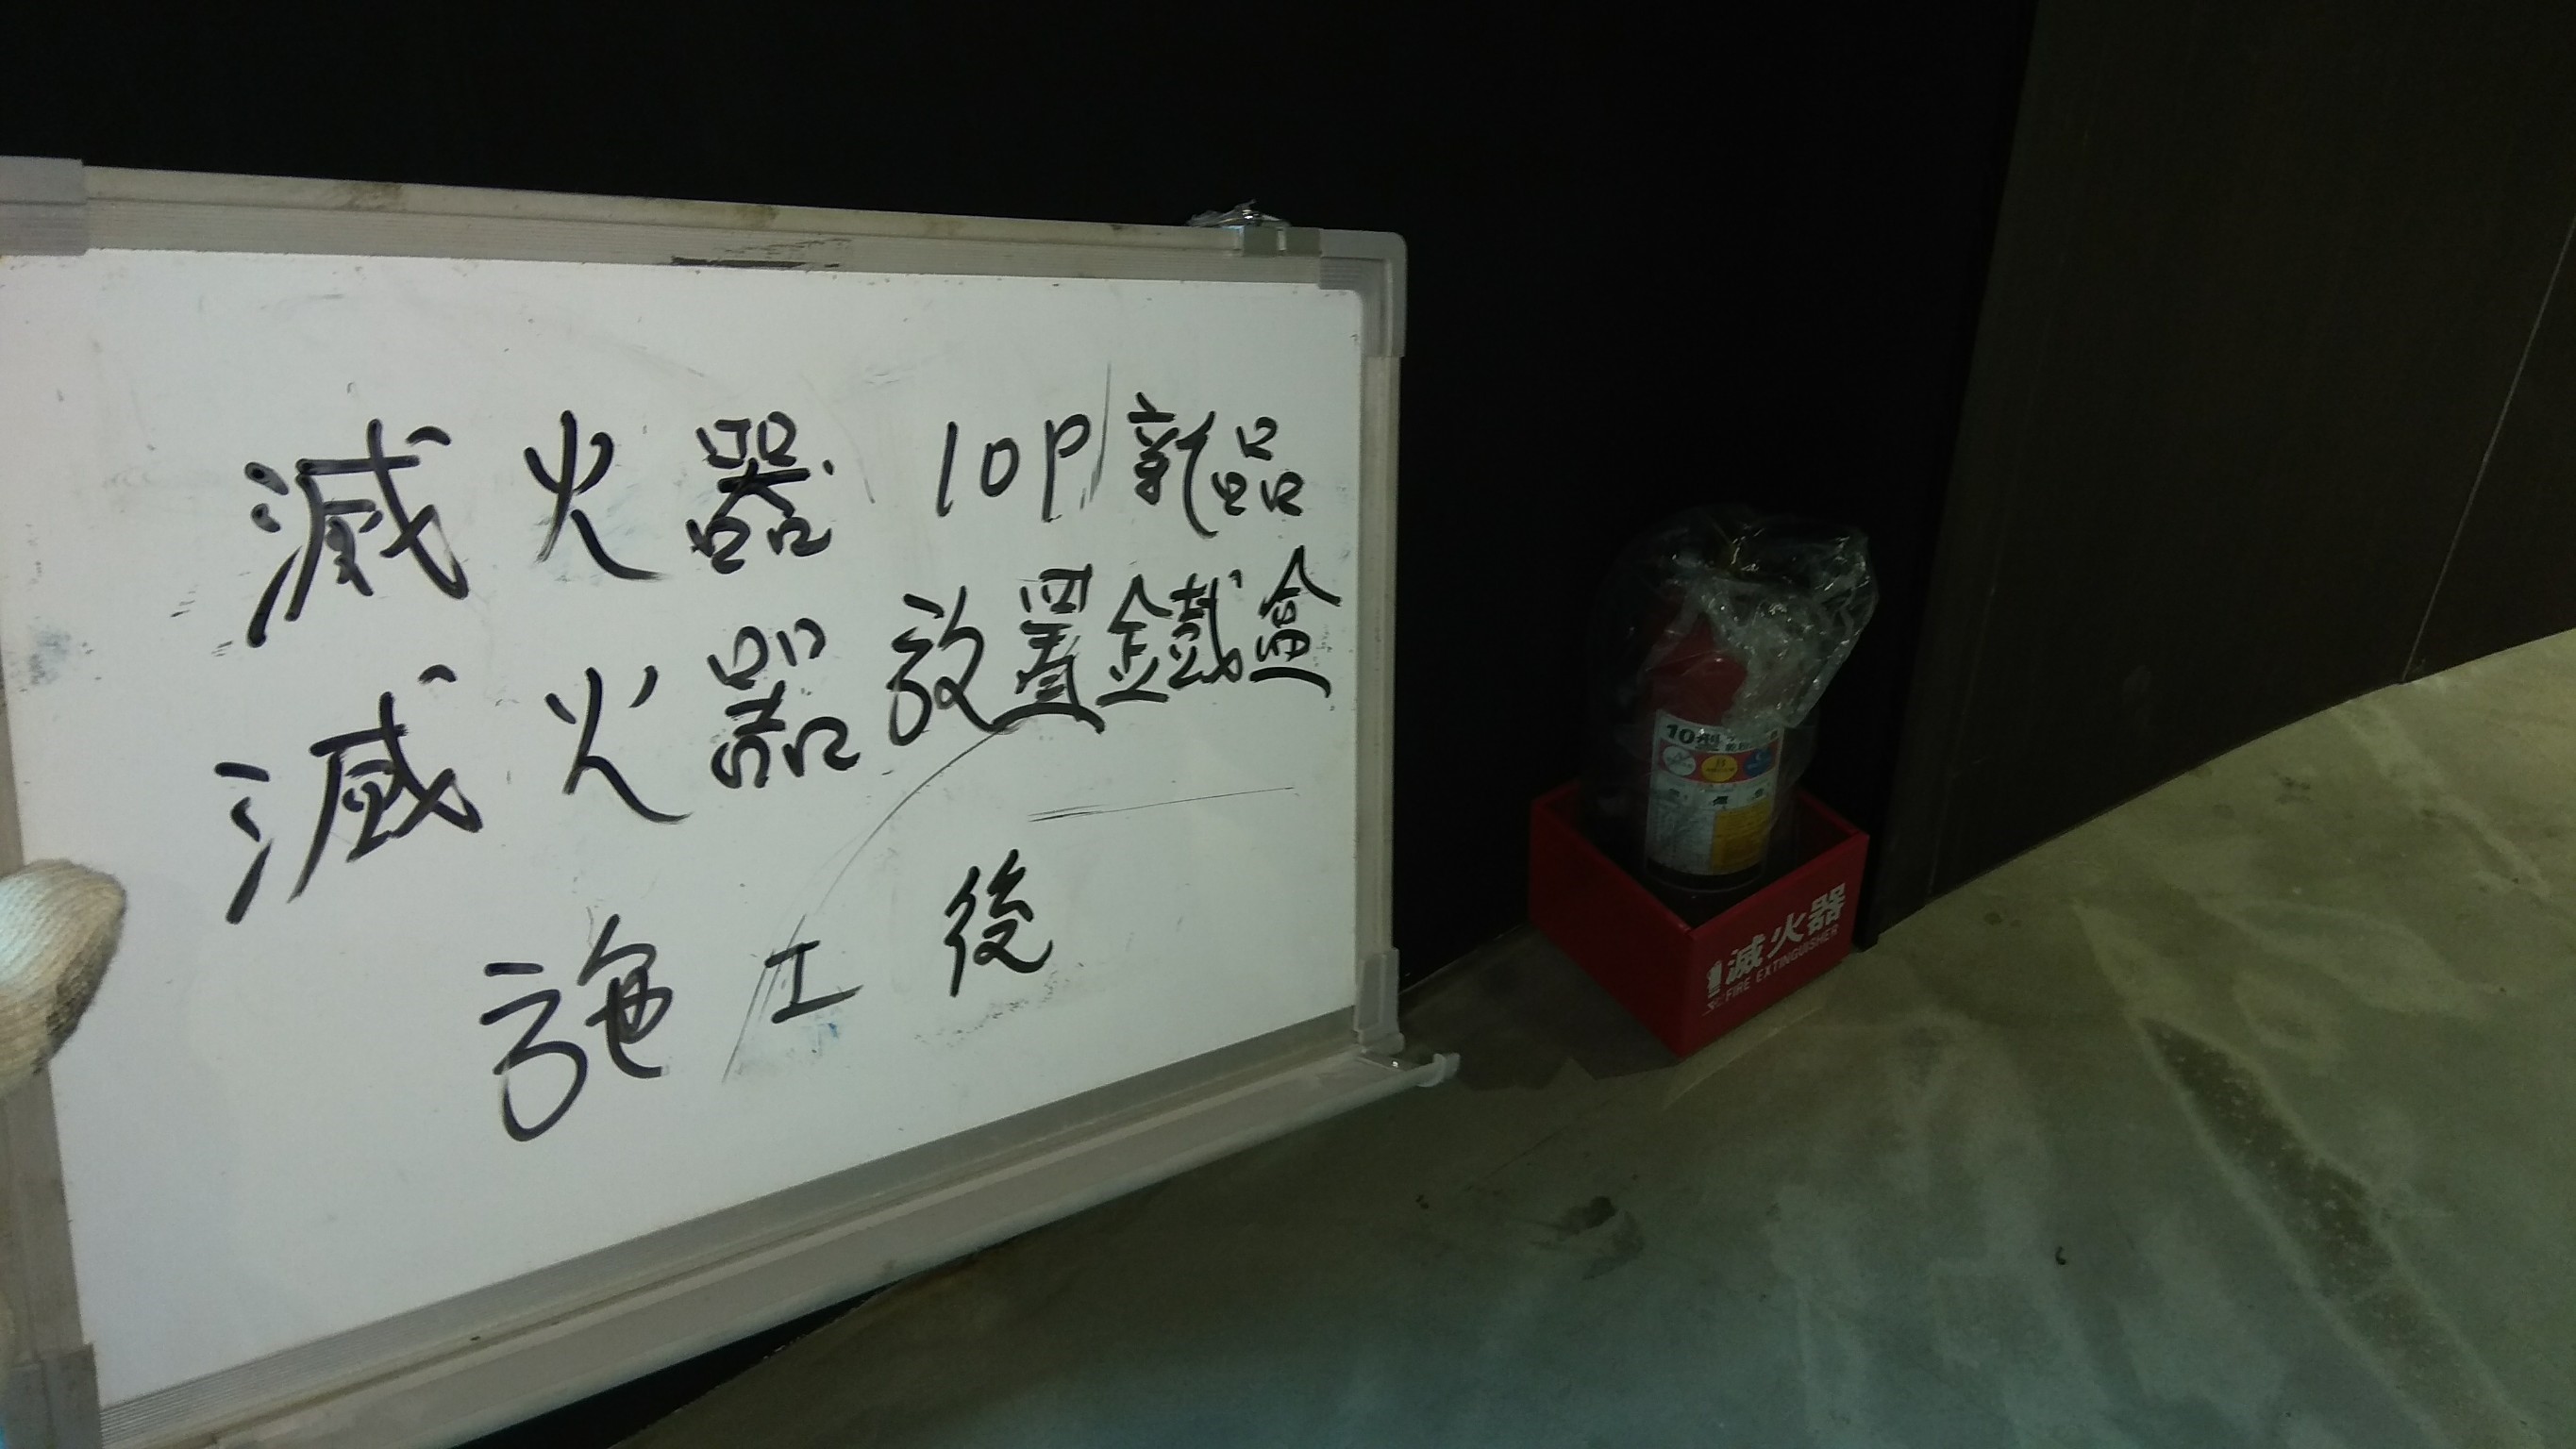 滅火器 10P 新品
滅火器放置鐵盒
施工後
10型
滅火器
FIRE EXTINGUISHER